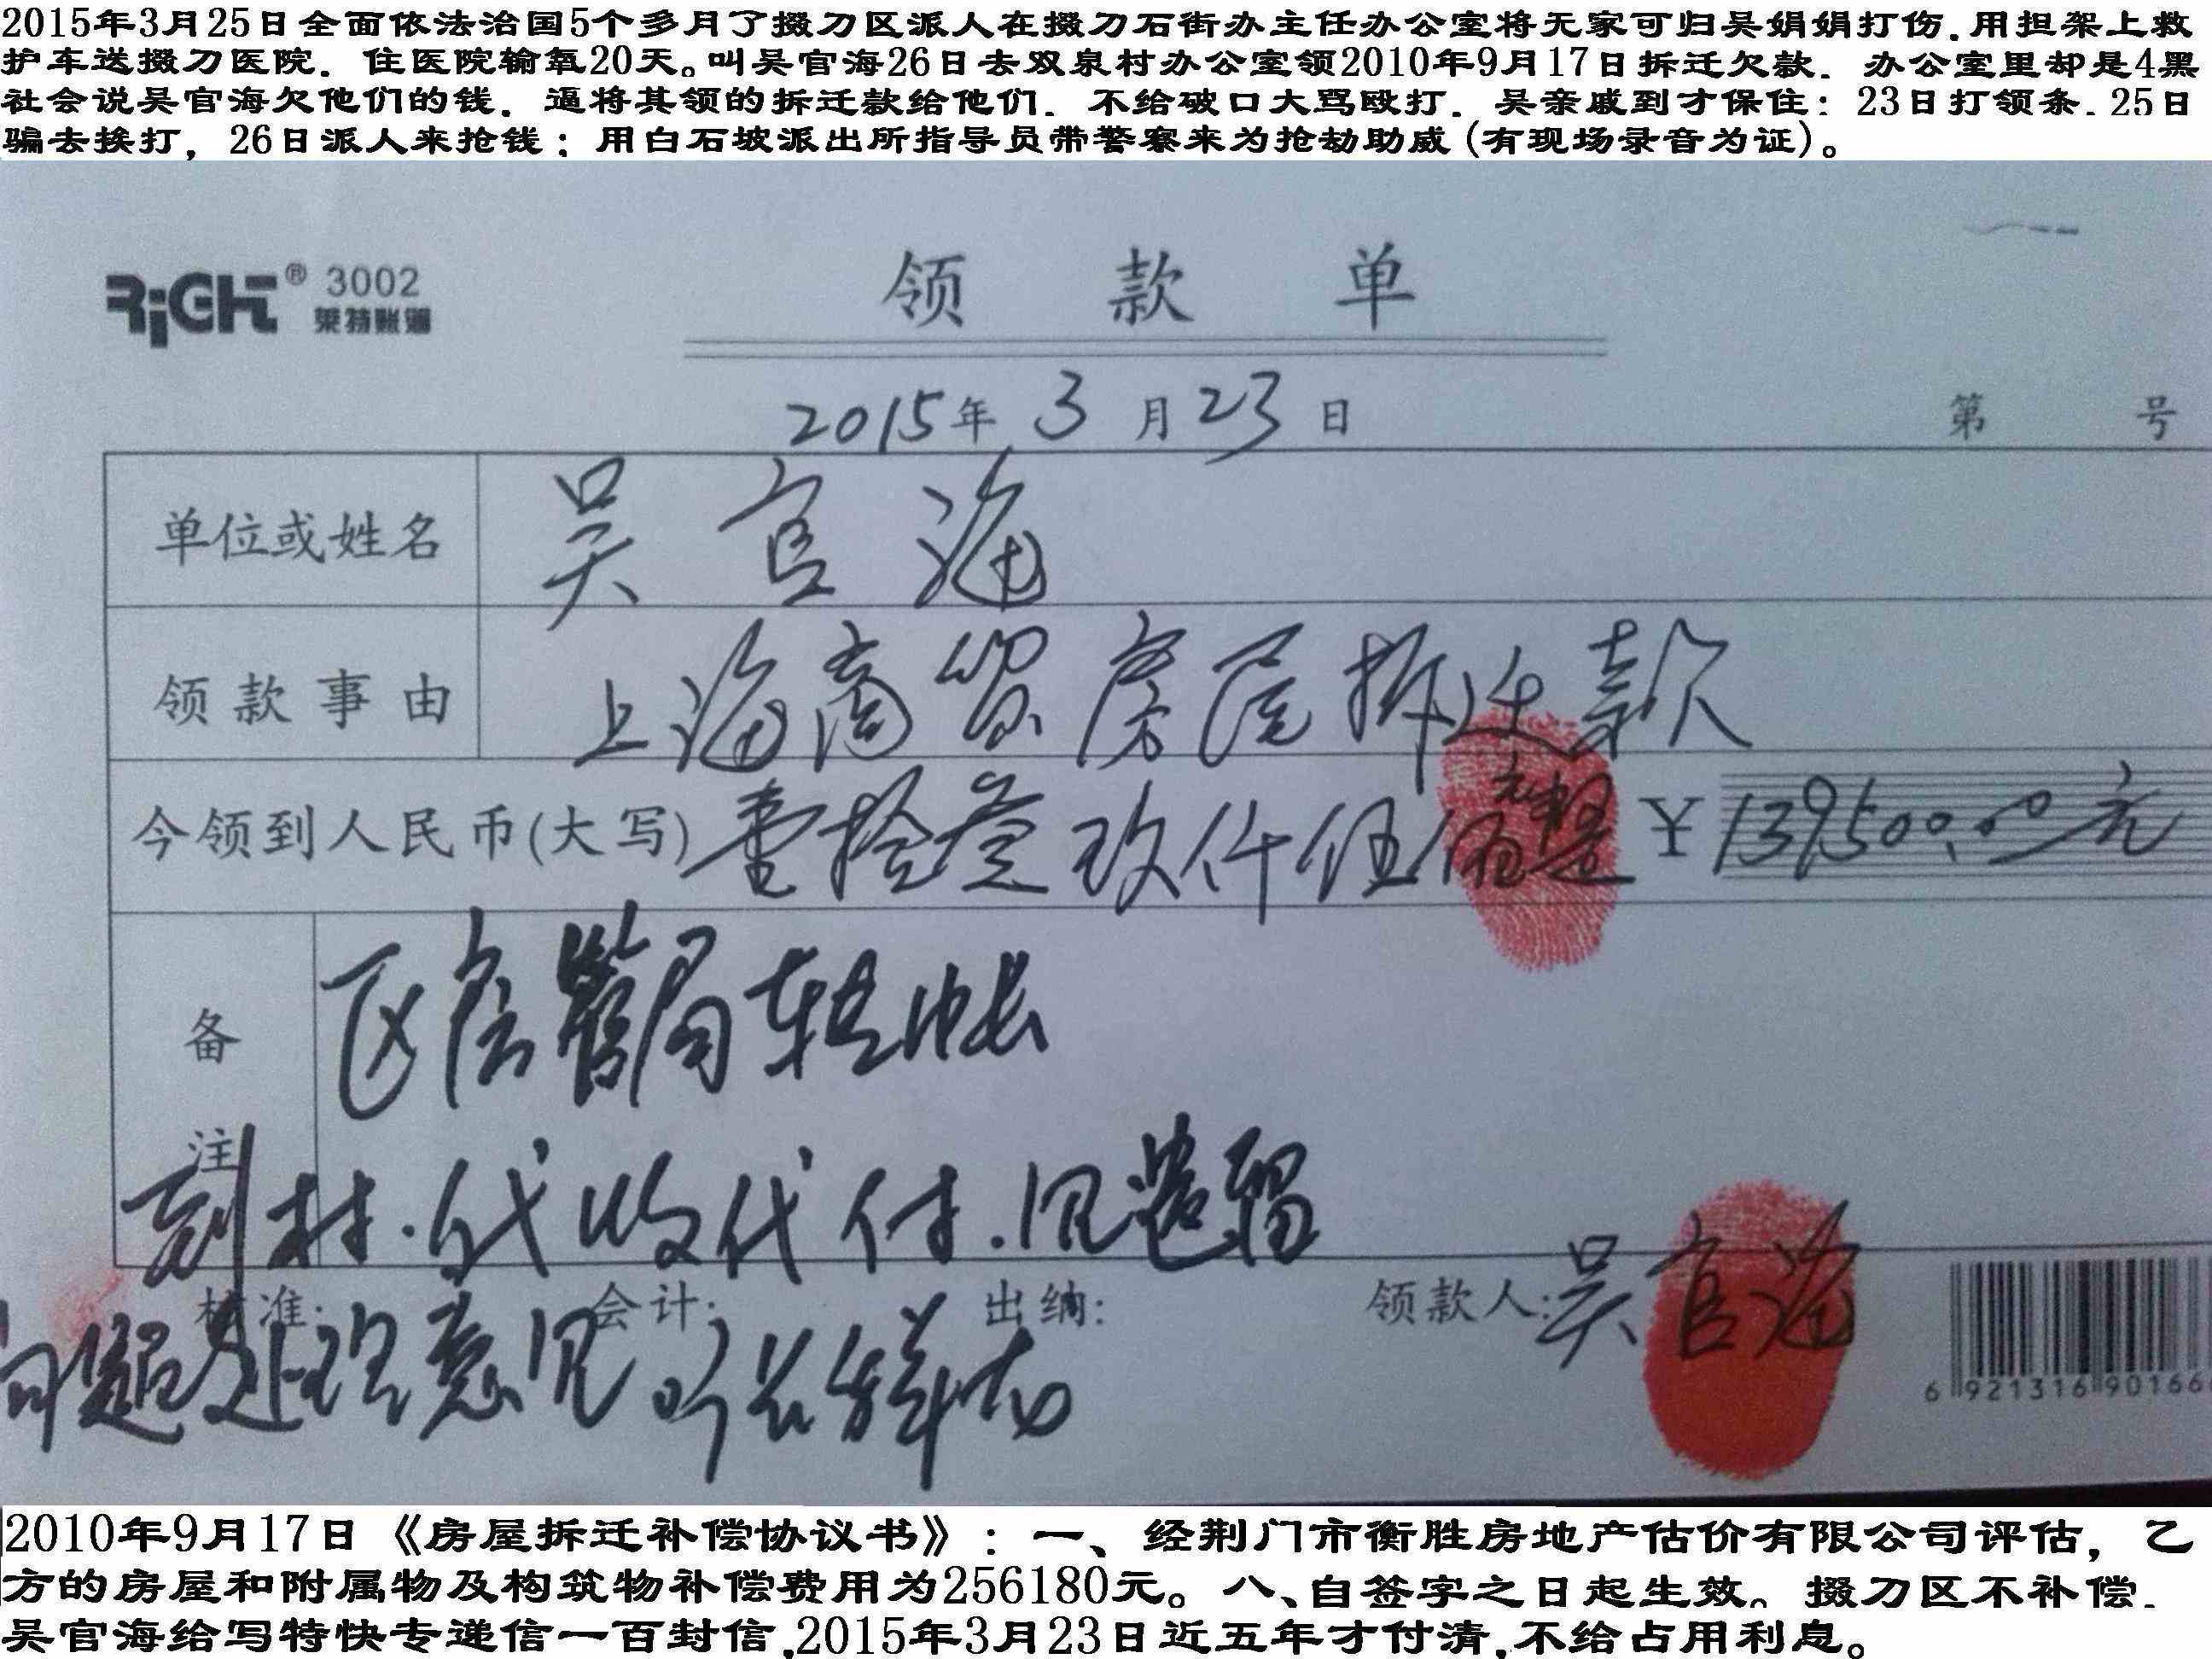 2015年3月25日全面依法治国5个多月了掇刀区派人在掇刀石街办主任办公室将无家可归吴娟娟打伤.用担架上救
护车送掇刀医院. 住医院输氧20天。叫吴官海26日去双泉村办公室领2010年9月17日拆迁欠款. 办公室里却是4黑
社会说吴官海欠他们的钱. 逼将其领的拆迁款给他们. 不给破口大骂殴打. 吴亲戚到才保住：23日打领条.25日
骗去挨打，26日派人来抢钱；用白石坡派出所指导员带警察来为抢劫助威(有现场录音为证)。
RiGHT® 3002
莱特账簿
领款单
2015年3月23日
第 号
单位或姓名 吴官海
领款事由 上海商贸房屋拆迁款
今领到人民币(大写) 壹拾叁玖仟伍佰元整 ¥139500.00元
备注
区房管局转帐
到村.代收代付.见遗留
核准: 会计: 出纳: 领款人:吴官海
问题处理意见
6 921316 90166
2010年9月17日《房屋拆迁补偿协议书》：一、经荆门市衡胜房地产估价有限公司评估，乙
方的房屋和附属物及构筑物补偿费用为256180元。八、自签字之日起生效。掇刀区不补偿.
吴官海给写特快专递信一百封信,2015年3月23日近五年才付清,不给占用利息。